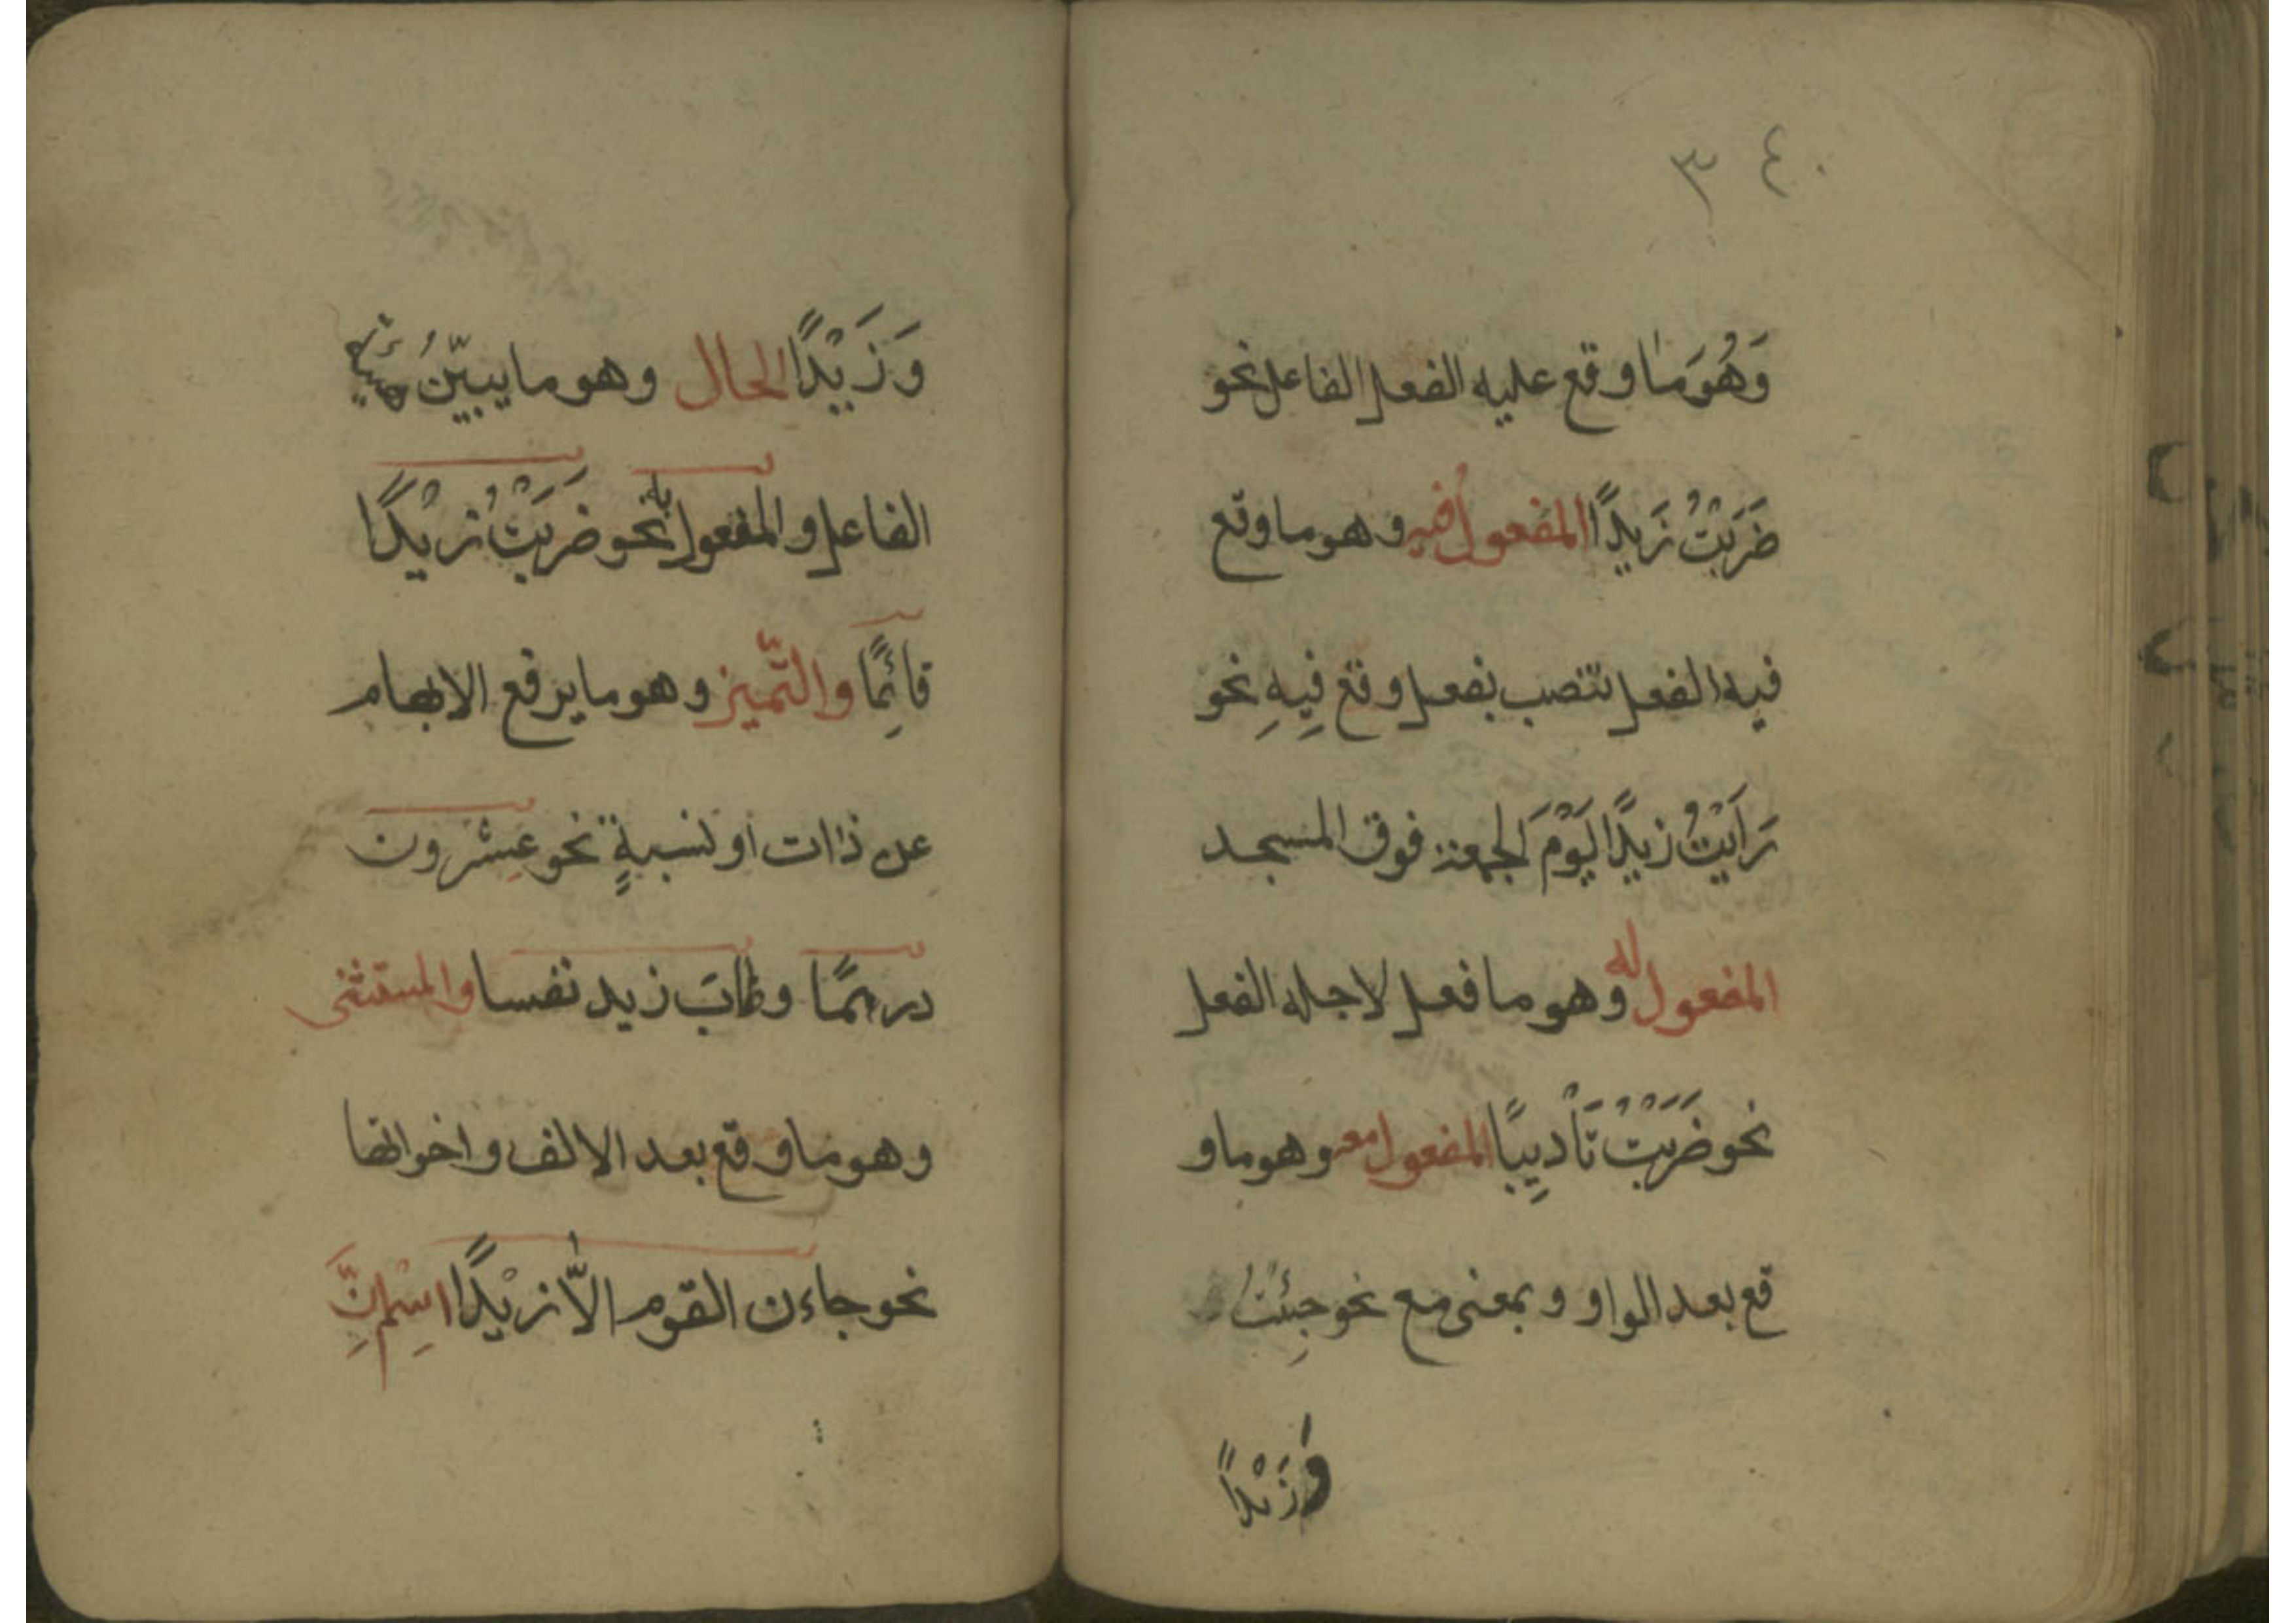 ٣ ٤٠
وَهُوَ مَا وقع عليه الفعل الفاعل نحو
ضَرَبْتُ زَيدًا المفعول فيه وهو ما وقع
فيه الفعل تنصب بفعل وقع فِيهِ نحو
رَاَيْتُ زيدًا يَوْمَ الجمعة فوق المسجد
المفعول له وهو ما فعل لاجله الفعل
نحو ضَرَبْتُ تَأْدِيبًا المفعول معه وهو ما و
قع بعد الواو و بمعنى مع نحو جِئْتُ
وَزَيْدًا
وَ زَيْدًا الحال وهو ما يبيّنُ هيئة
الفاعل و المفعول به نحو ضَرَبْتُ زَيْدًا
قائِمًا والتّميز وهو ما يرفع الابهام
عن ذات او نسبةٍ نحو عِشرون
درهمًا وطابَ زيد نفسا والمستثنى
وهو ما وقع بعد الا لف و اخواتها
نحو جاءن القوم الاّ زيْدًا اسْم انَّ